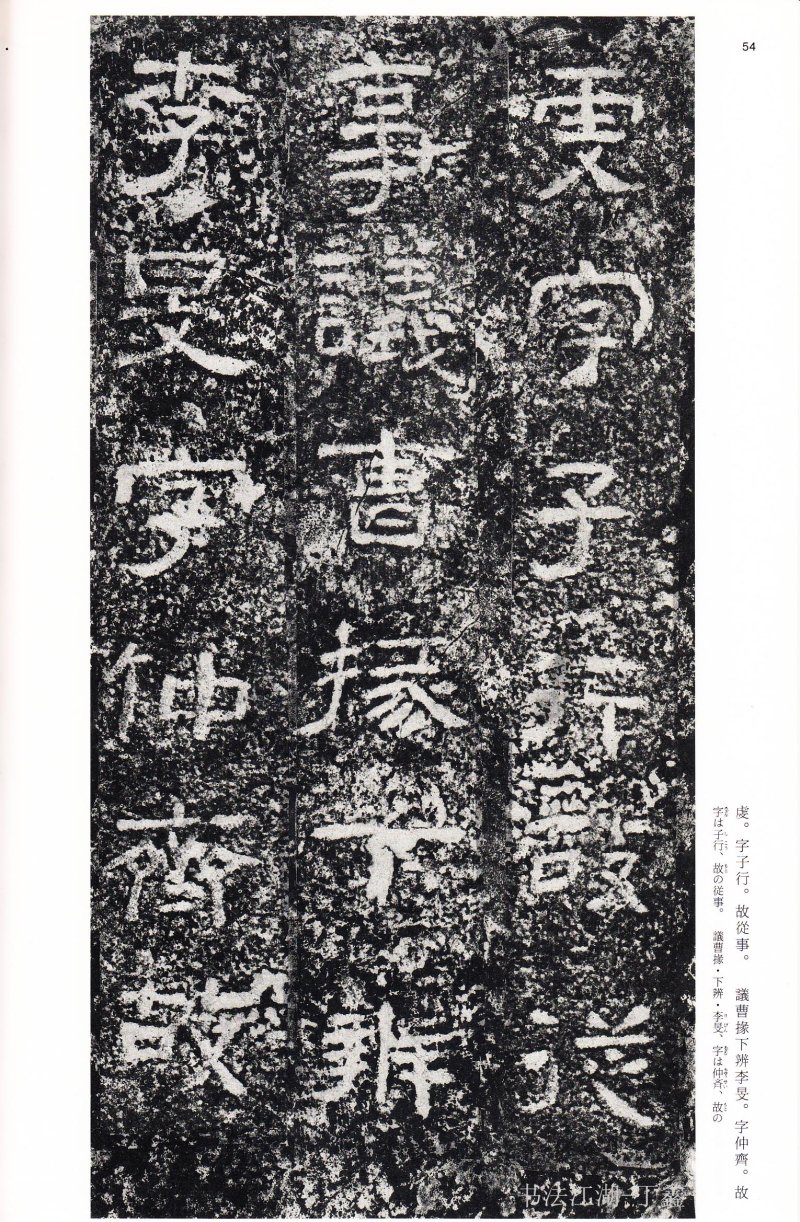 54
虔字子行故從
事議曹掾下辨
李旻字仲齊故
虔。字子行。故從事。 議曹掾下辨李旻。字仲齊。故
字は子行、故の従事。 議曹掾・下辨・李旻、字は仲斉、故の
书法江湖